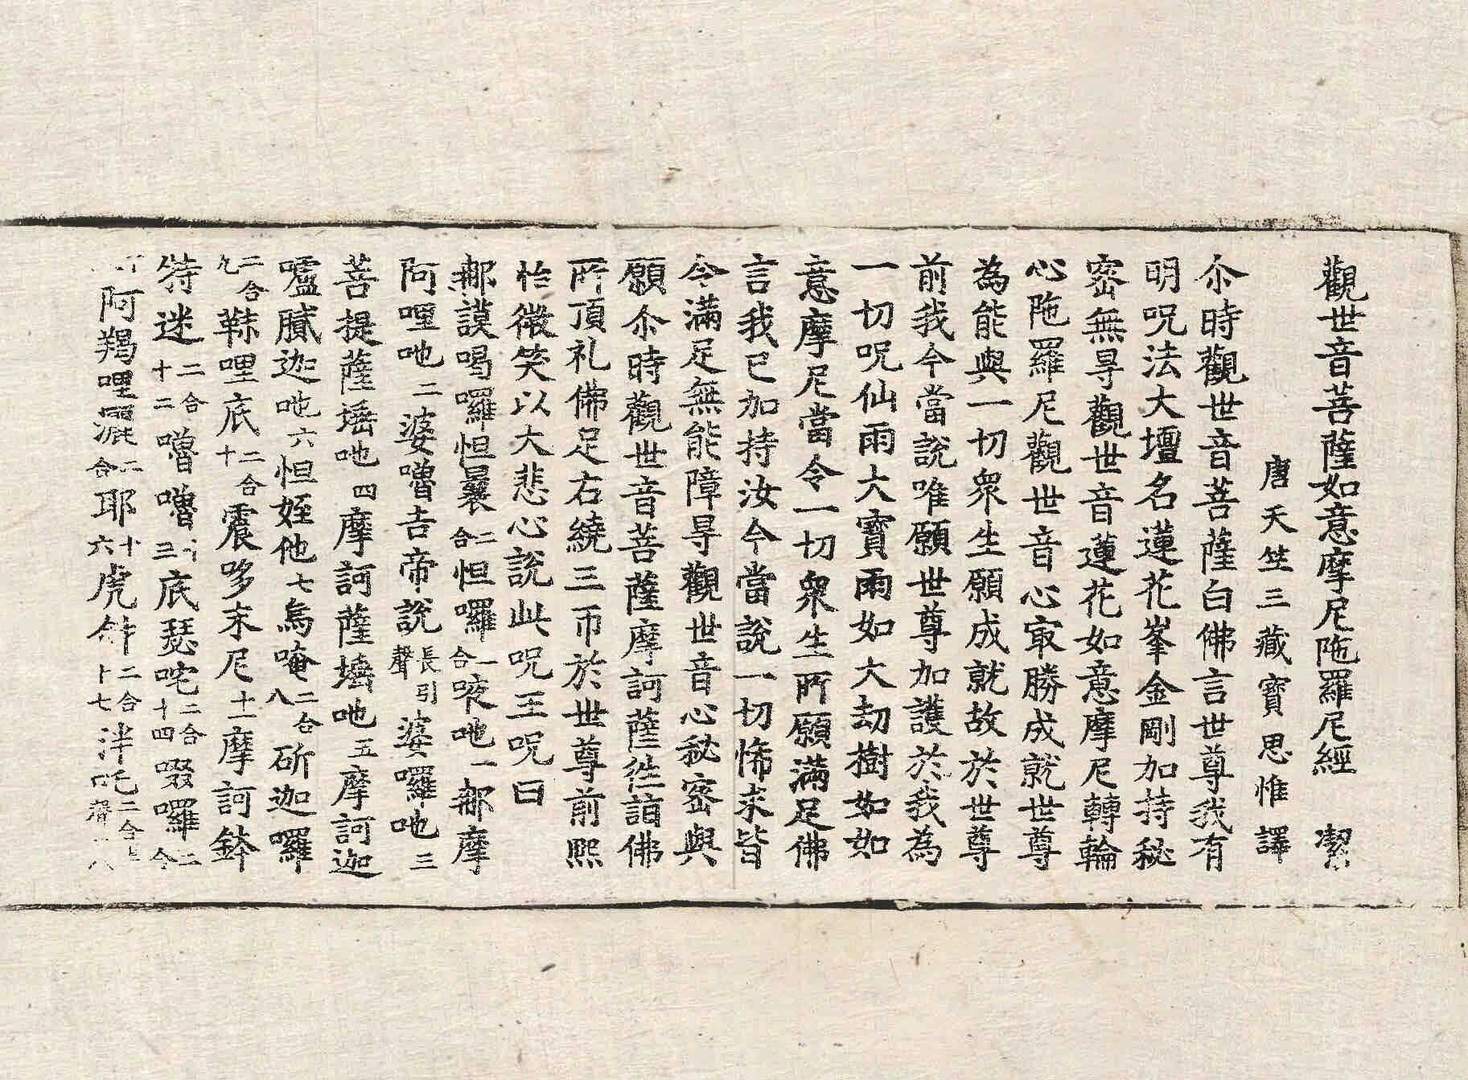 觀世音菩薩如意摩尼陁羅尼經 潔
唐天竺三藏寶思惟 譯
尒時觀世音菩薩白佛言世尊我有
明呪法大壇名蓮花峯金剛加持秘
密無㝵觀世音蓮花如意摩尼轉輪
心陁羅尼觀世音心㝡勝成就世尊
為能與一切衆生願成就故於世尊
前我今當說唯願世尊加護於我為
一切呪仙雨大寶雨如大劫樹如如
意摩尼當令一切衆生所願滿足佛
言我已加持汝今當說一切怖求皆
令滿足無能障㝵觀世音心秘密與
願尒時觀世音菩薩摩訶薩徃詣佛
所頂礼佛足右繞三帀於世尊前熙
怡微笑以大悲心說此呪王呪曰
鄁謨喝囉怛曩二合怛囉二合㖿吔一鄁摩
阿哩吔二婆嚕吉帝說長引聲婆囉吔三
菩提薩埵吔四摩訶薩埵吔五摩訶迦
嚧膩迦吔六怛姪他七烏唵二合八斫迦囉
二合九靺哩底二合十震哆末尼十一摩訶鉢
特迷二合十二嚕嚕十三底瑟咤二合十四啜囉二合
阿羯哩灑二合耶十六虎𤙖二合十七泮吒二合